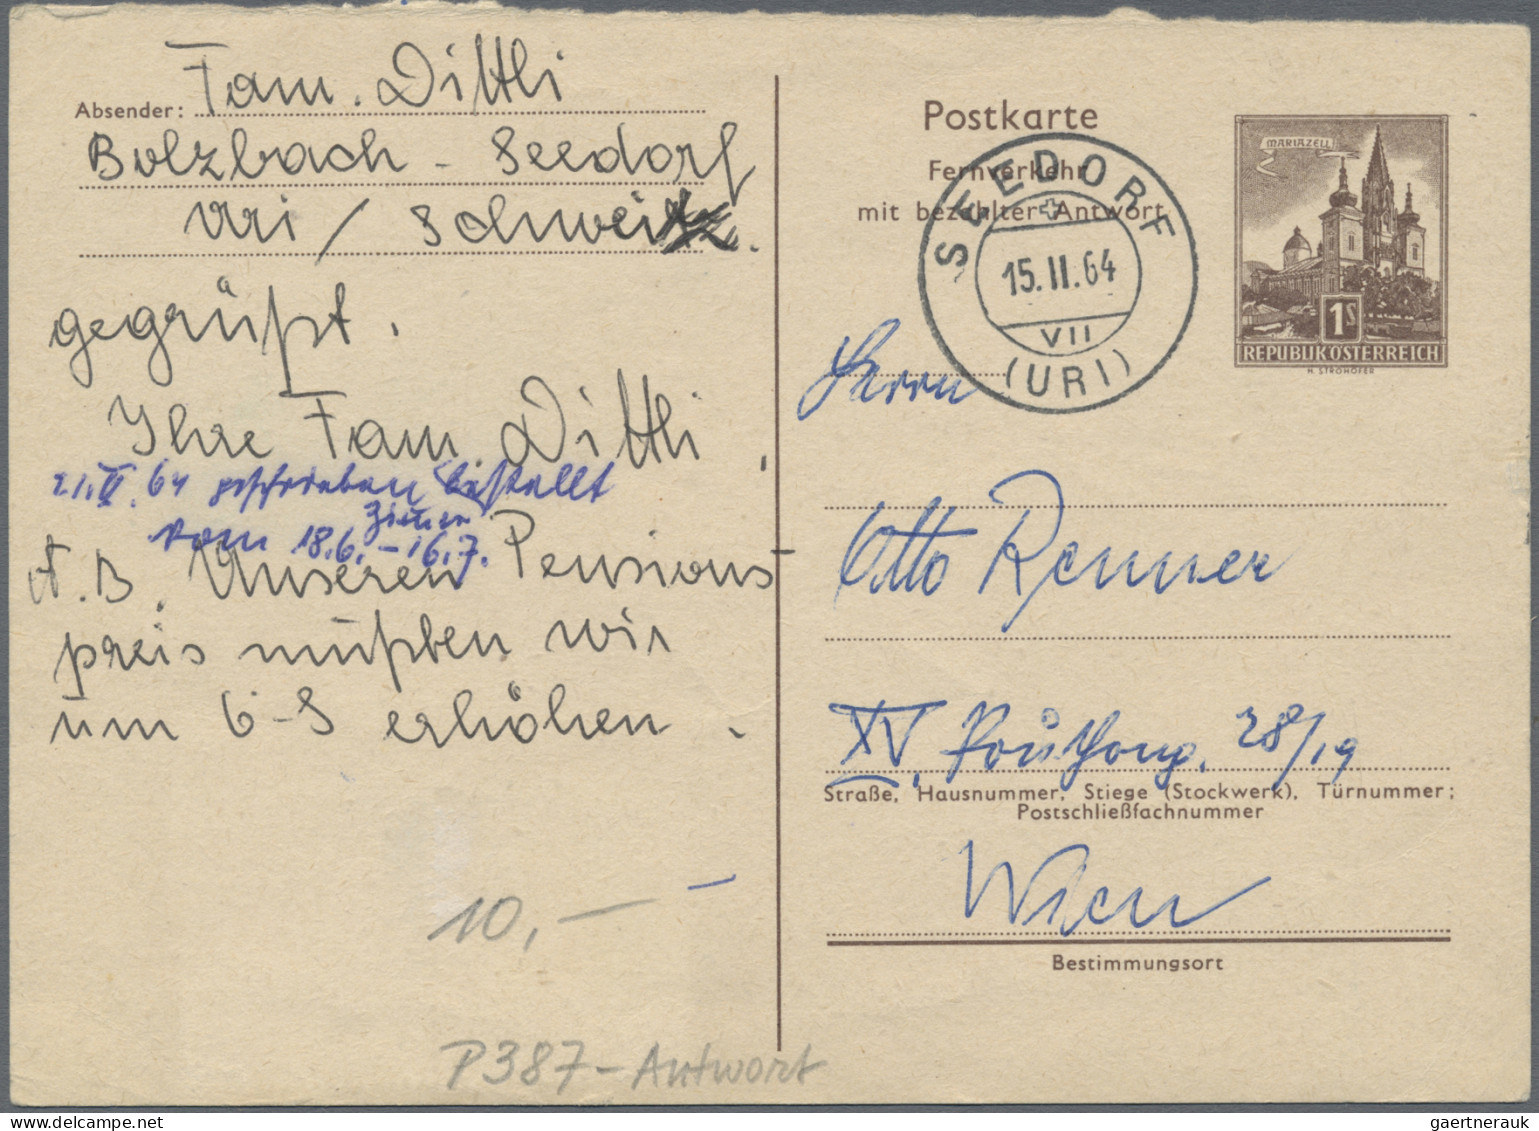 Absender: Fam. Dittli
Bolzbach - Seedorf
Uri / Schweiz.
gegrüßt.
Ihre Fam. Dittli.
21.II.64 geschrieben bestellt
Zimmer
vom 18.6. - 16.7.
N.B. Unseren Pensions-
preis mußten wir
um 6-S erhöhen.
10,-
P387-Antwort
Postkarte
Fernverkehr
mit bezahlter Antwort
SEEDORF
15.II.64
VII
(URI)
MARIAZELL
1S
REPUBLIK ÖSTERREICH
H. STROHOFER
Herrn
Otto Renner
XV, 28/19
Straße, Hausnummer, Stiege (Stockwerk), Türnummer;
Postschließfachnummer
Wien
Bestimmungsort
gaertnerauk